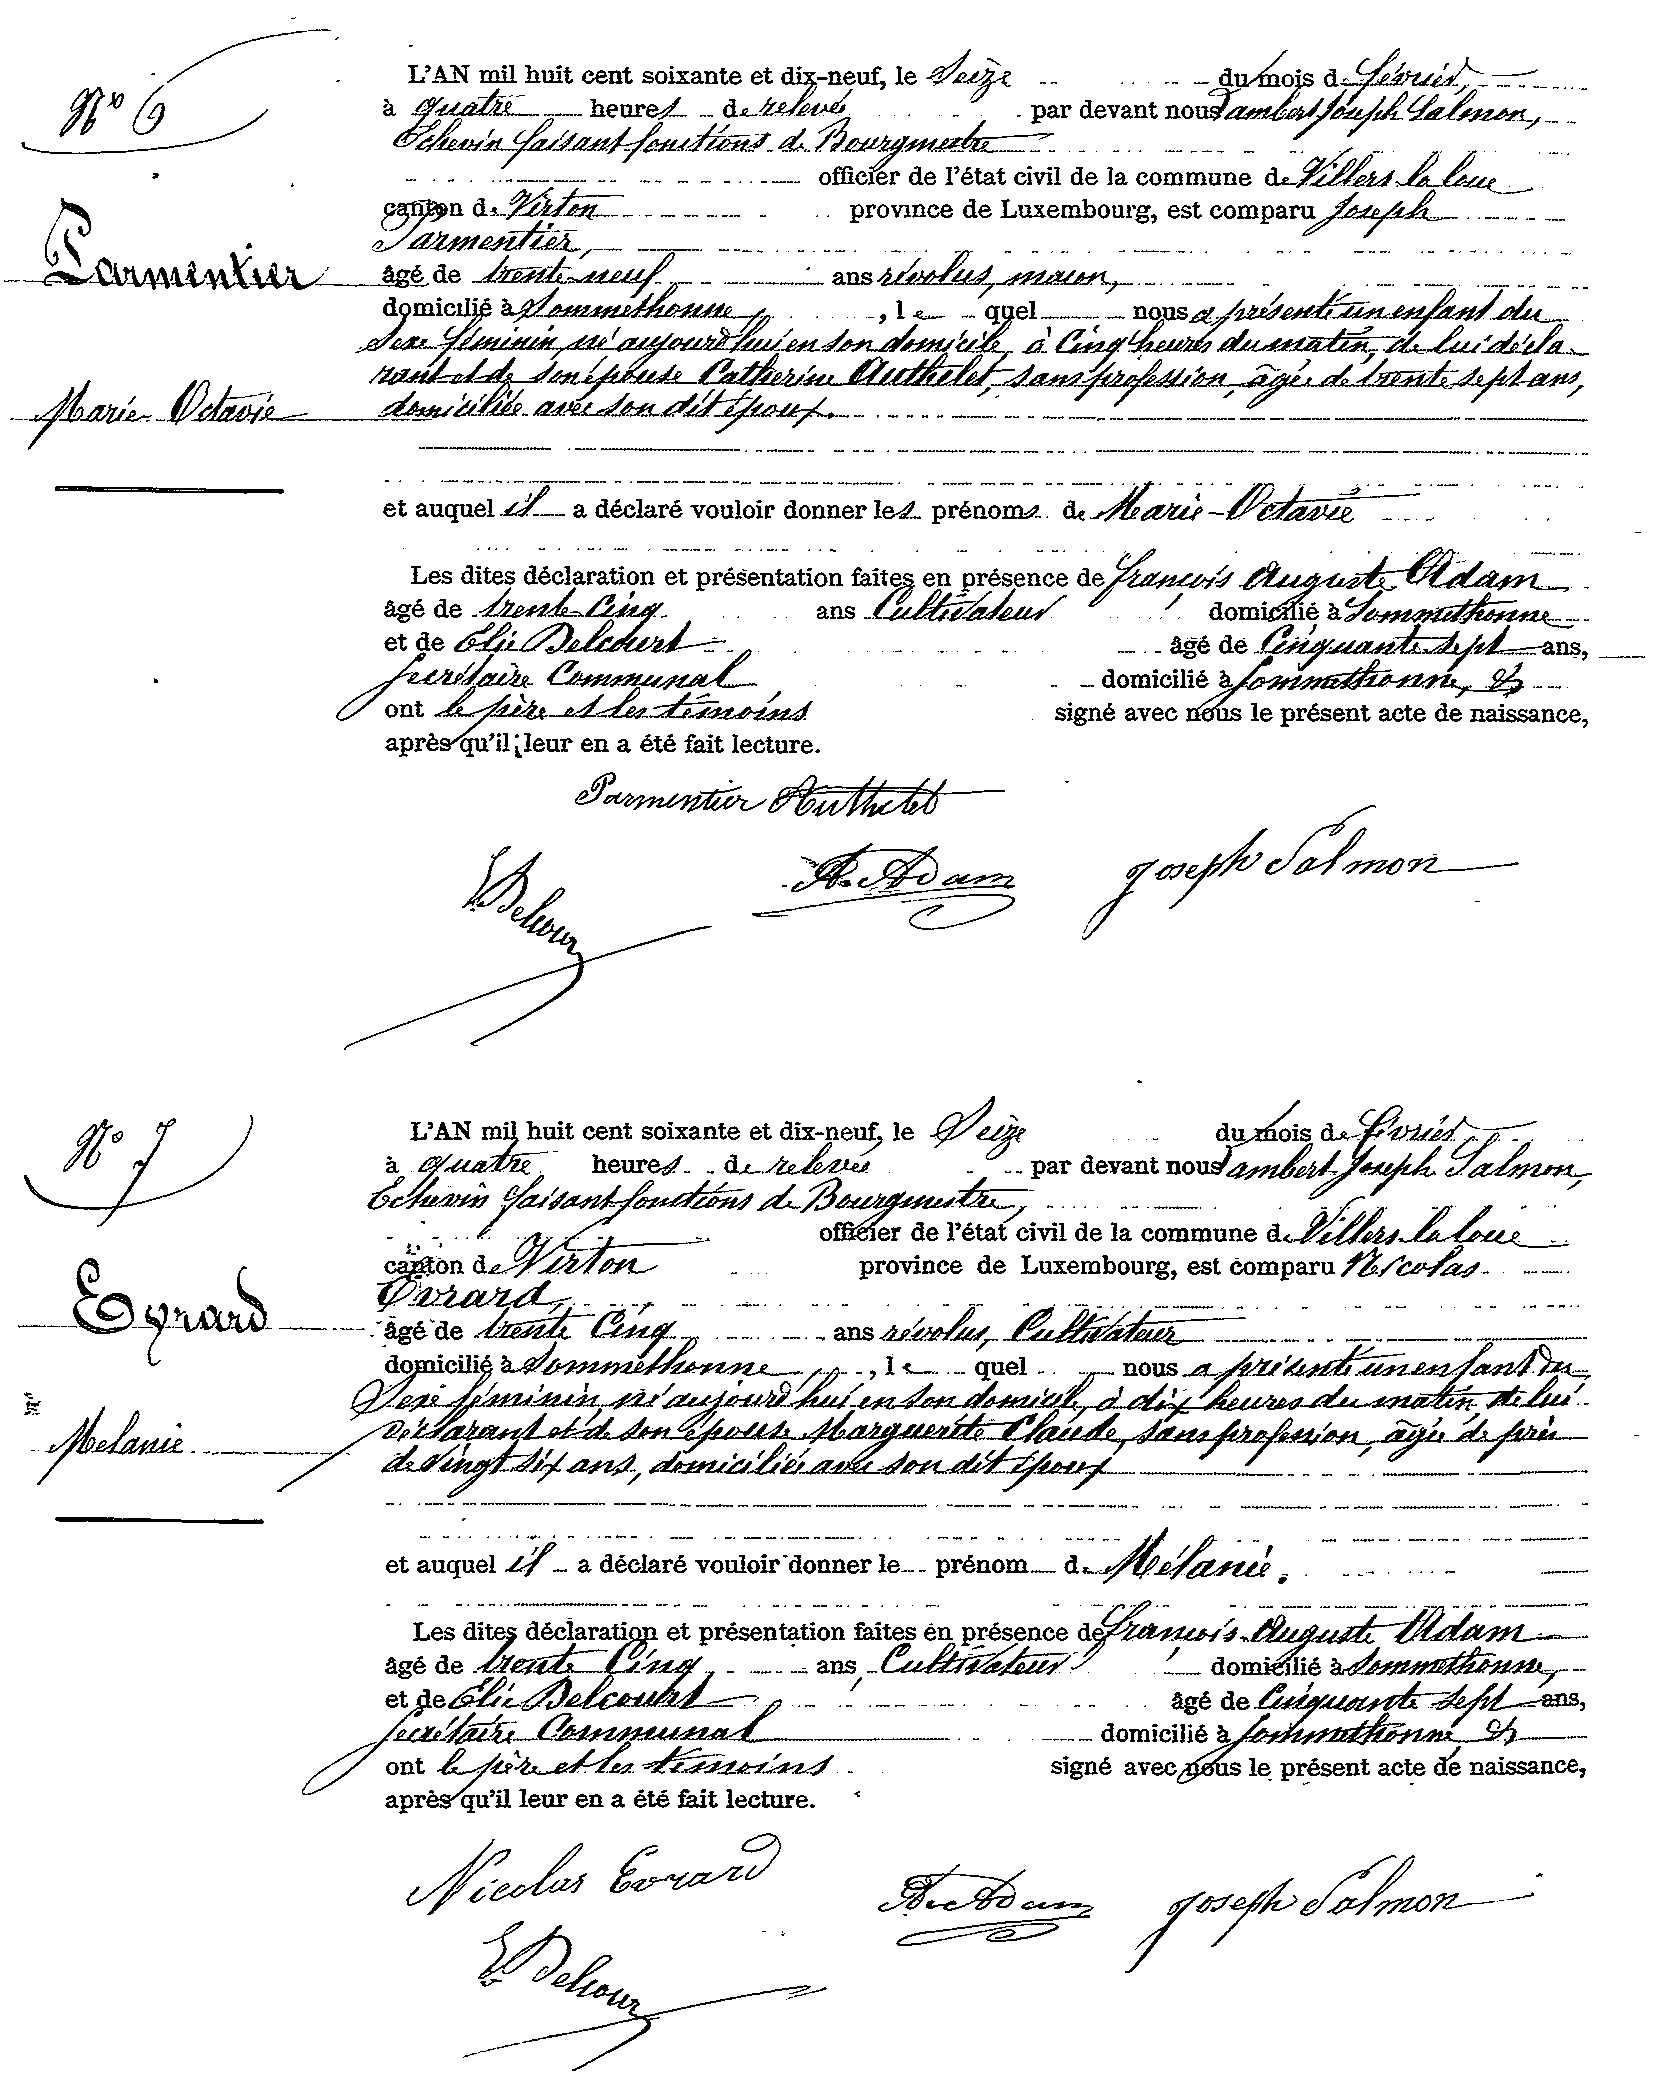 N° 6
Parmentier
Marie Octavie
L'AN mil huit cent soixante et dix-neuf, le Seize du mois de février,
à quatre heures de relevée par devant nous Lambert Joseph Salmon,
Echevin faisant fonctions de Bourgmestre
officier de l'état civil de la commune de Villers la loue
canton de Virton province de Luxembourg, est comparu Joseph
Parmentier,
âgé de trente-neuf ans révolus, macon,
domicilié à Sommethonne, , le quel nous a présenté un enfant du
Sexe féminin, né aujourd'hui en son domicile, à Cinq heures du matin, de lui décla-
rant et de son épouse Catherine Authelet, sans profession, âgée de trente sept ans,
domiciliée avec son dit époux.
et auquel il a déclaré vouloir donner les prénoms de Marie-Octavie
Les dites déclaration et présentation faites en présence de françois Auguste Adam
âgé de trente-Cinq ans Cultivateur domicilié à Sommethonne
et de Elie Delcourt âgé de Cinquante sept ans,
Secrétaire Communal domicilié à Sommethonne, &
ont le père et les témoins signé avec nous le présent acte de naissance,
après qu'il leur en a été fait lecture.
Parmentier Authelet
E Delcour
A. Adam
Joseph Salmon
N° 7
Evrard
Melanie
L'AN mil huit cent soixante et dix-neuf, le Seize du mois de février
à quatre heures de relevée par devant nous Lambert Joseph Salmon,
Echevin faisant fonctions de Bourgmestre,
officier de l'état civil de la commune de Villers la loue
canton de Virton province de Luxembourg, est comparu Nicolas
Evrard,
âgé de trente Cinq ans révolus, Cultivateur
domicilié à Sommethonne , le quel nous a présenté un enfant du
Sexe féminin, né aujourd'hui en son domicile, à dix heures du matin, de lui
déclarant et de son épouse Marguerite Claude, sans profession, âgée de près
de vingt six ans, domiciliée avec son dit époux
et auquel il a déclaré vouloir donner le prénom de Mélanie.
Les dites déclaration et présentation faites en présence de françois Auguste Adam
âgé de trente Cinq ans, Cultivateur domicilié à Sommethonne,
et de Elie Delcourt âgé de Cinquante sept ans,
Secrétaire Communal domicilié à Sommethonne &
ont le père et les témoins signé avec nous le présent acte de naissance,
après qu'il leur en a été fait lecture.
Nicolas Evrard
A. Adam
Joseph Salmon
E Delcour